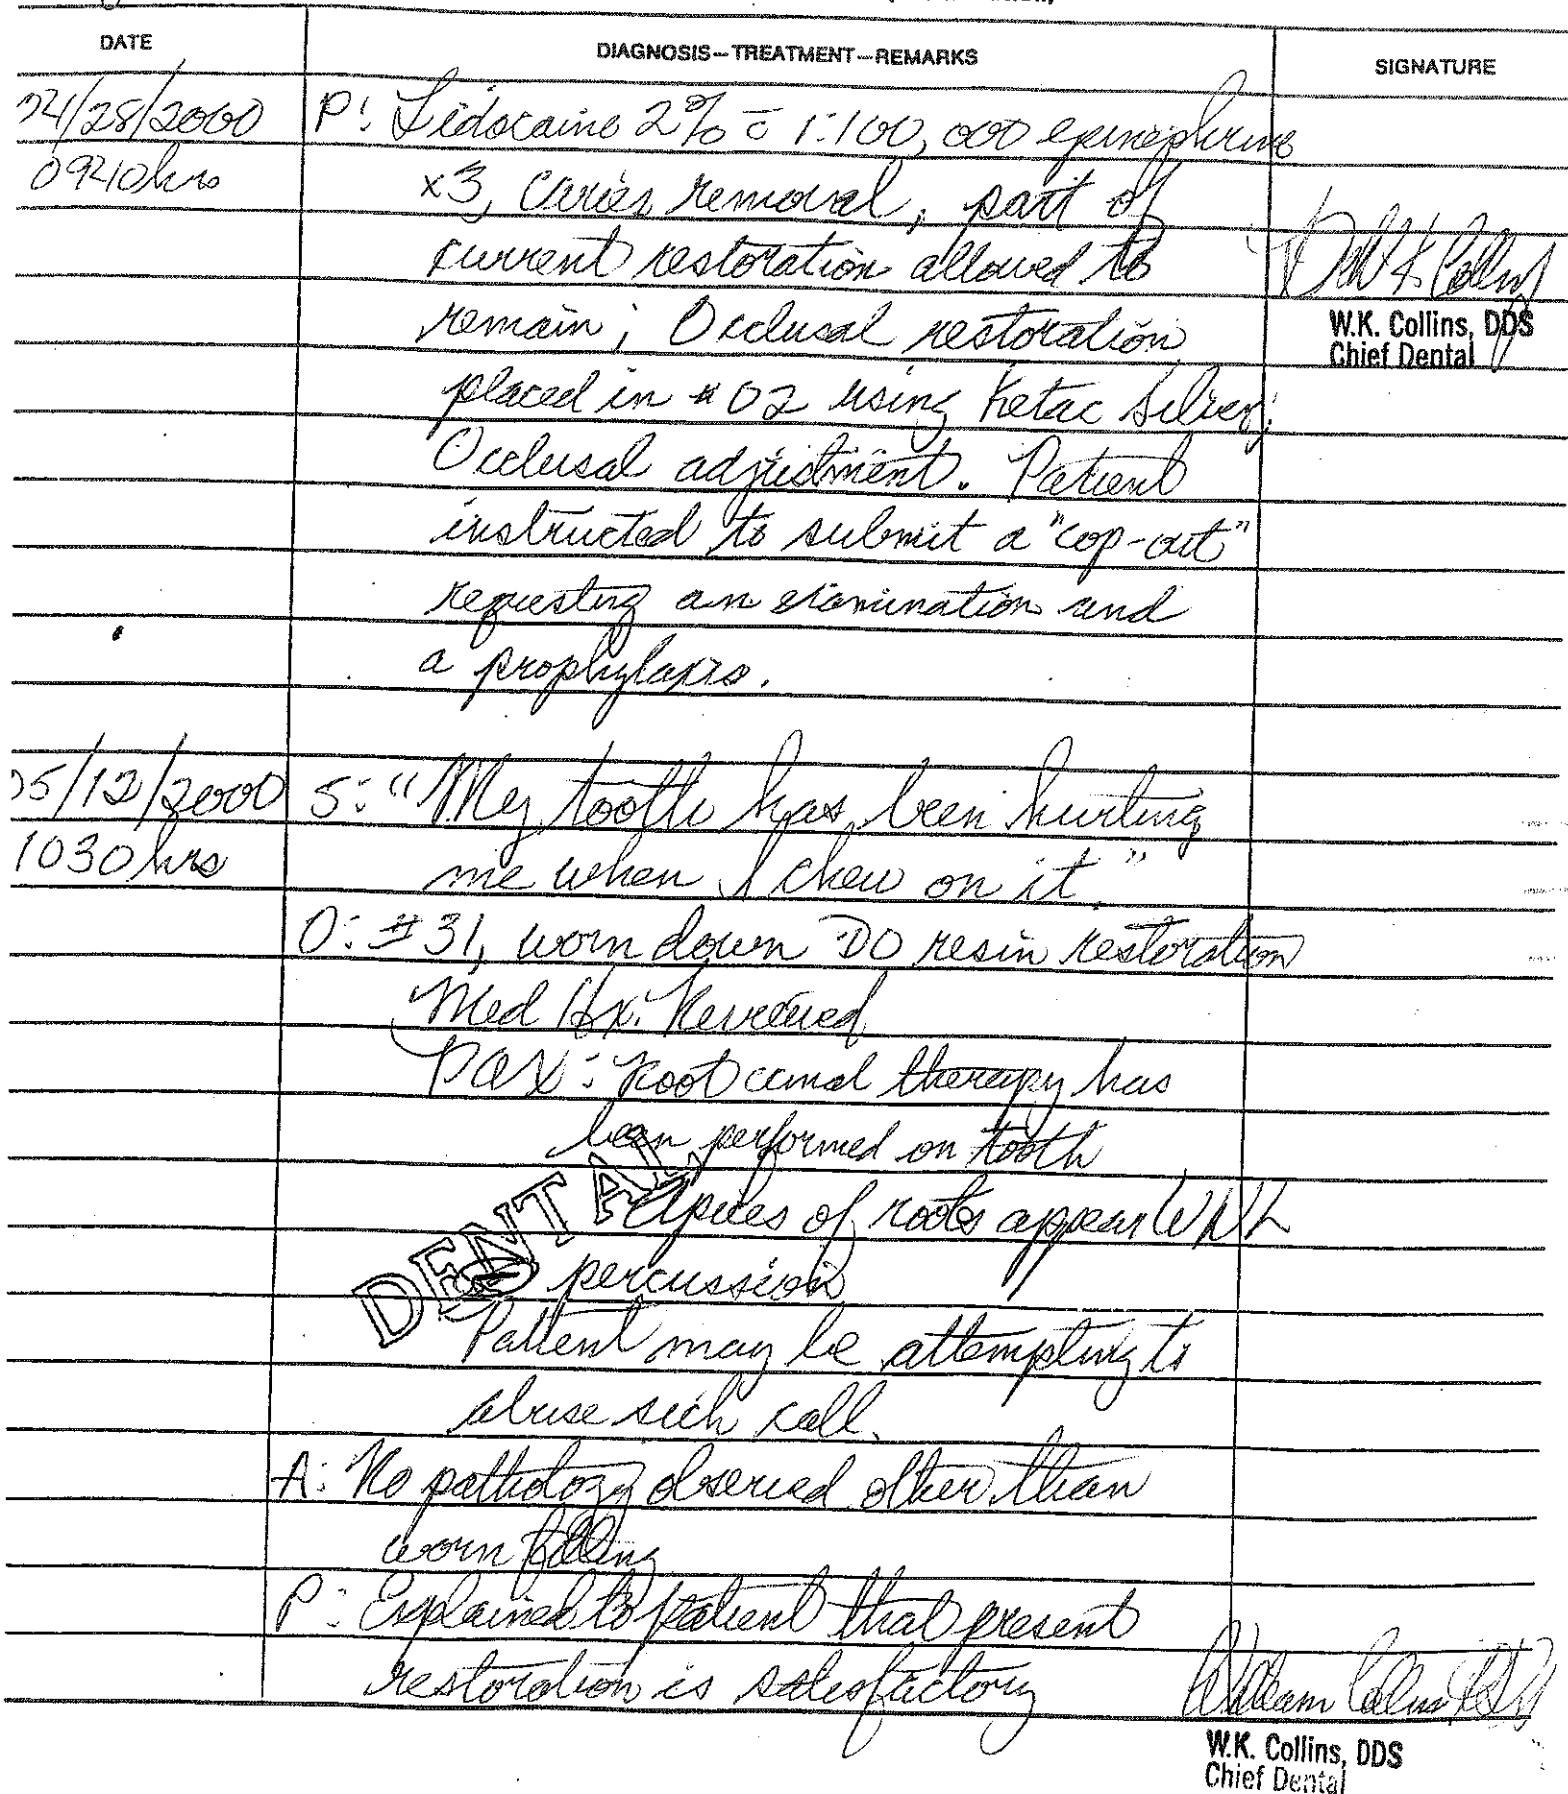 DATE
DIAGNOSIS–TREATMENT–REMARKS
SIGNATURE
04/28/2000 P: Lidocaine 2% c̄ 1:100,000 epinephrine
0940hrs x3, Caries removal, part of
current restoration allowed to
remain; Occlusal restoration
W.K. Collins, DDS
Chief Dental
placed in #02 using Ketac Silver;
Occlusal adjustment. Patient
instructed to submit a "cop-out"
requesting an examination and
a prophylaxis.
05/12/2000 S: "My tooth has been hurting
1030hrs me when I chew on it."
O: #31, worn down DO resin restoration
Med Hx: Reviewed
: Root canal therapy has
been performed on tooth
Apices of roots appear WNL
DENTAL
percussion
Patient may be attempting to
abuse sick call.
A: No pathology observed other than
worn filling
P: Explained to patient that present
restoration is satisfactory
William Collins DDS
W.K. Collins, DDS
Chief Dental